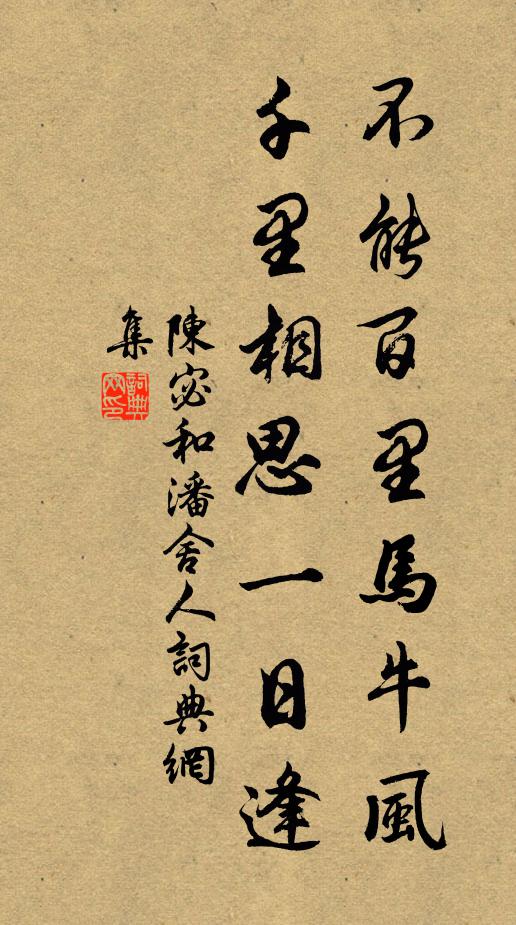 不能百里馬牛風
千里相思一日逢
陳宓和潘舍人詞典網
集
詞典網印